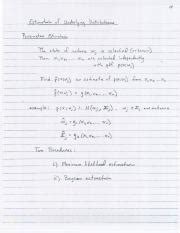 Estimation of Underlying Distributions
Parametric Estimation
The state of nature ωj is selected (unknown)
Then x1, x2, ... xn are selected independently
with pdf p(x|ωj)
Find p̂(x|ωj) an estimate of p(x|ωj) from x1, x2 ... xn
p̂(x|ωj) = g(x1, x2, ... xn)
example: p(x|ωj) ~ N(μj, Σj), μj, Σj are unknown
μ̂j = g1(x1, x2, ... xn)
Σ̂j = g2(x1, x2, ... xn)
Two Procedures:
i) Maximum likelihood estimation
ii) Bayesian estimation